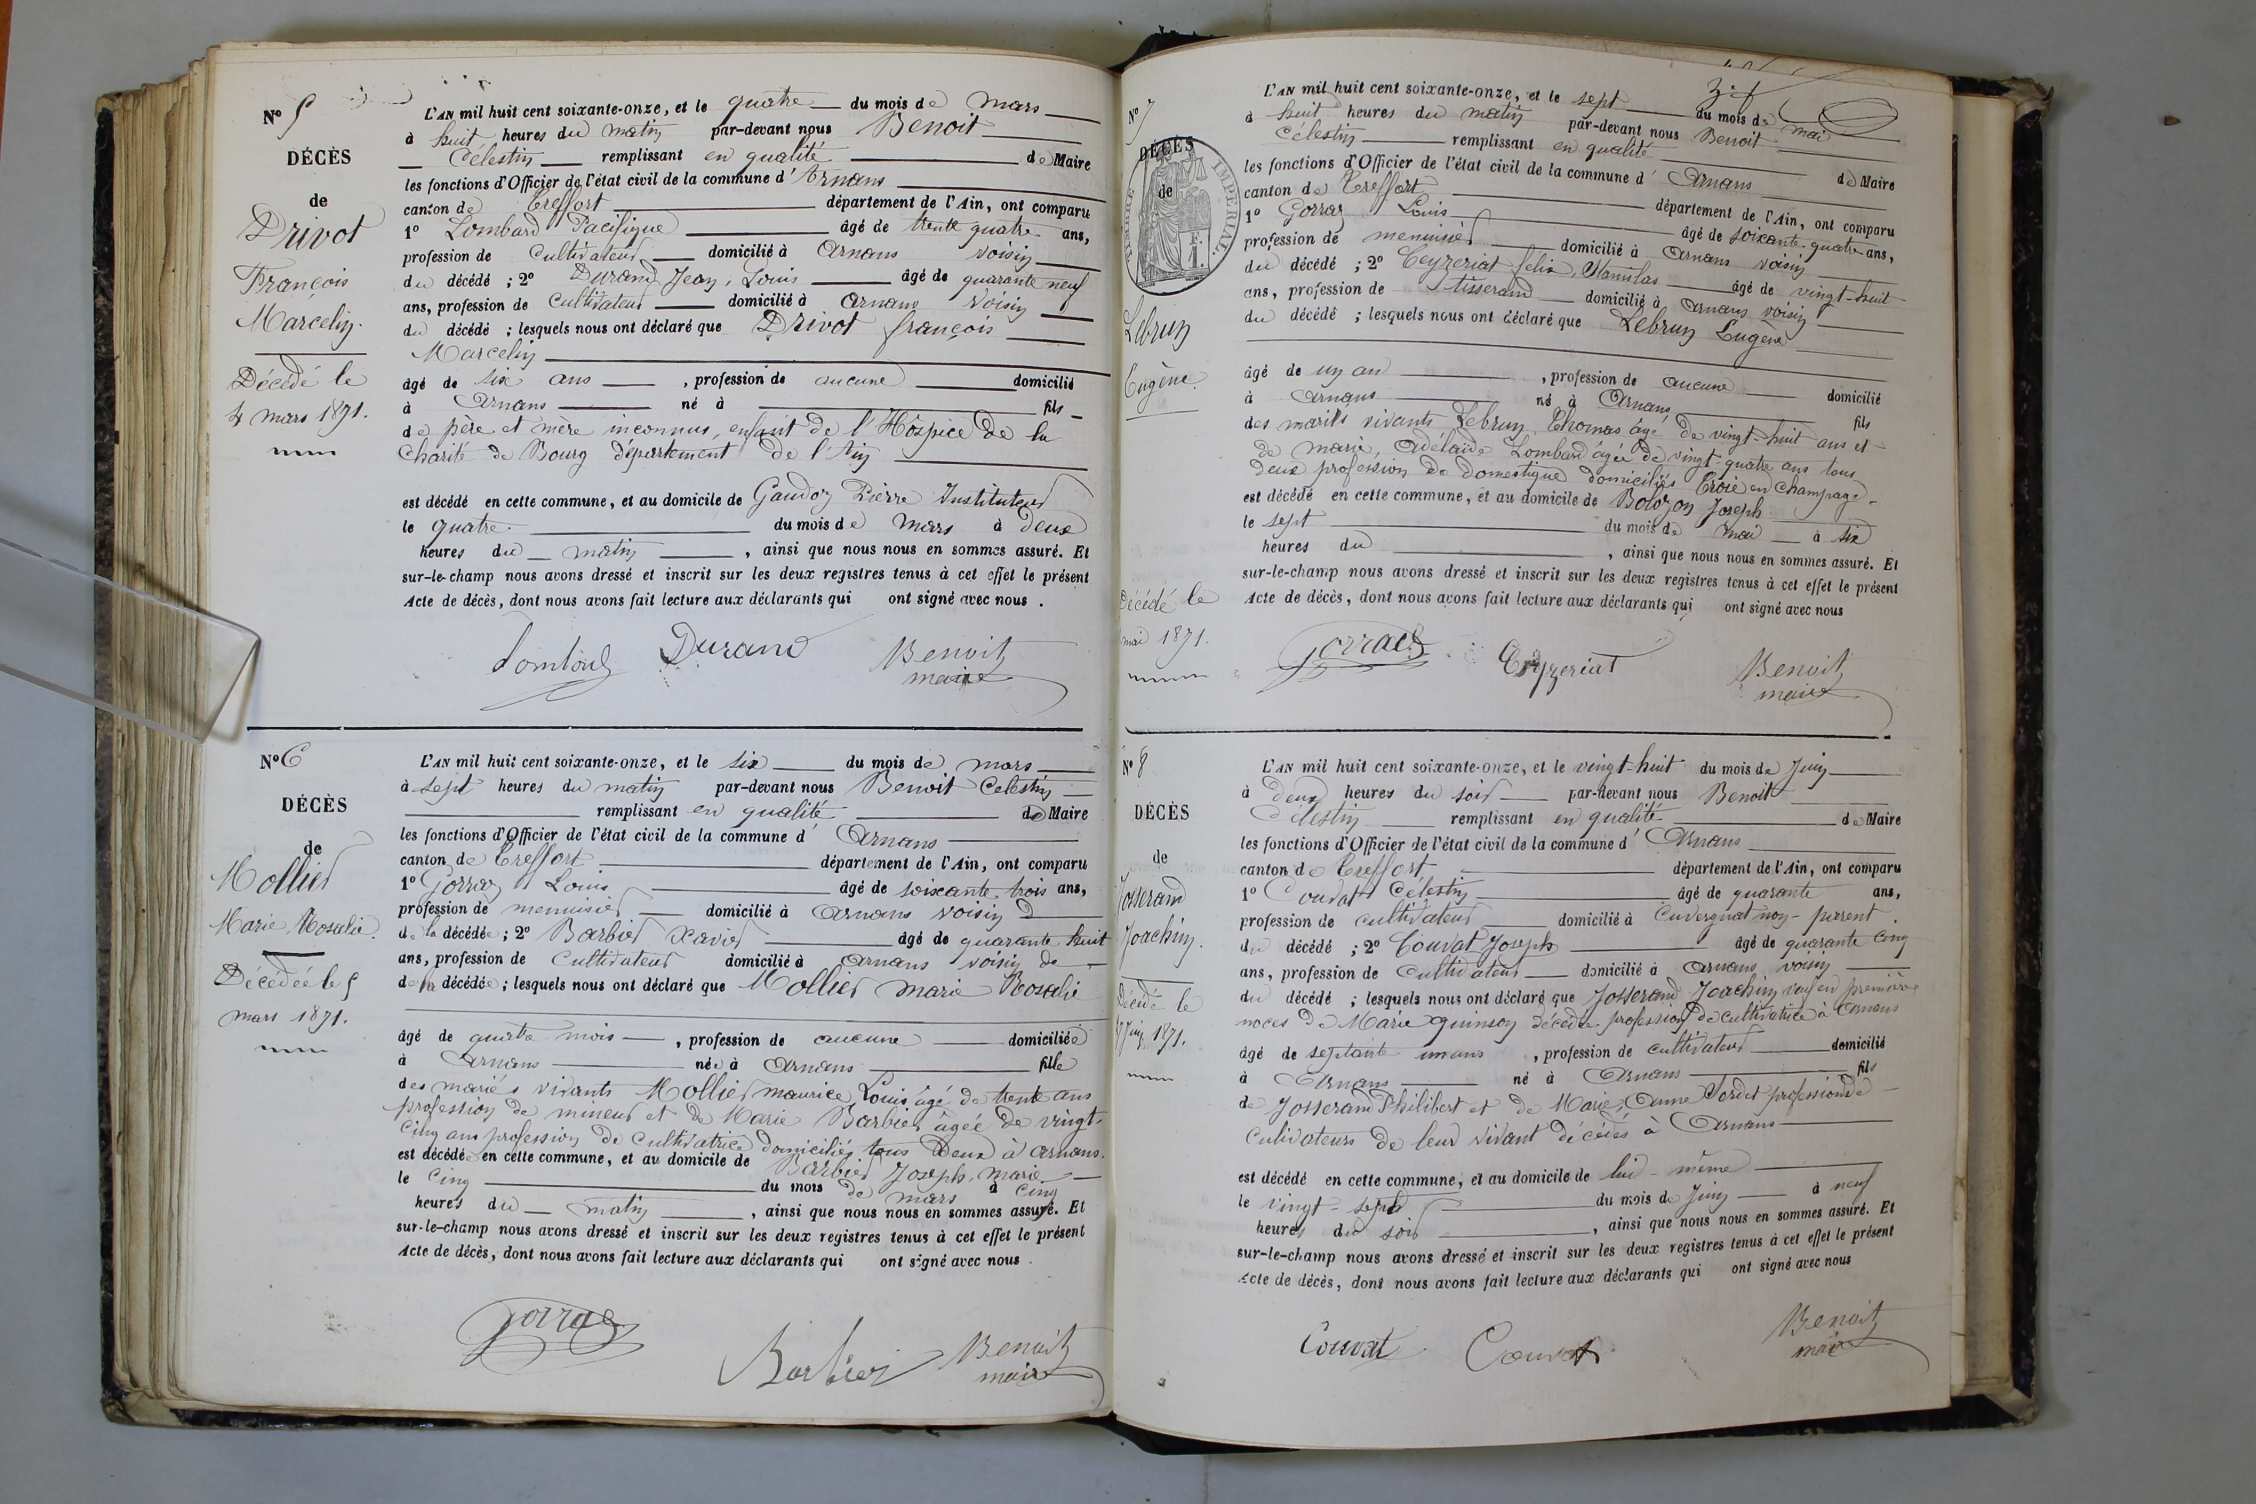 N° 5
DÉCÈS
de
Drivot
François
Marcelin.
Décédé le
4 mars 1871.
L'AN mil huit cent soixante-onze, et le quatre du mois de mars
à huit heures du matin par-devant nous Benoit
Célestin remplissant en qualité de Maire
les fonctions d'Officier de l'état civil de la commune d'Arnans
canton de Treffort département de l'Ain, ont comparu
1° Lombard Pacifique âgé de trente quatre ans,
profession de Cultivateur domicilié à Arnans voisin
du décédé ; 2° Durand Jean, Louis âgé de quarante neuf
ans, profession de Cultivateur domicilié à Arnans voisin
du décédé ; lesquels nous ont déclaré que Drivot françois
Marcelin
âgé de six ans , profession de aucune domicilié
à Arnans né à fils
de père et mère inconnus, enfant de l'Hospice de la
Charité de Bourg département de l'Ain
est décédé en cette commune, et au domicile de Gaudoz Pierre Instituteur
le quatre du mois de mars à deux
heures du matin , ainsi que nous nous en sommes assuré. Et
sur-le-champ nous avons dressé et inscrit sur les deux registres tenus à cet effet le présent
Acte de décès, dont nous avons fait lecture aux déclarants qui ont signé avec nous .
Lombard Durand Benoit
maire
N° 6
DÉCÈS
de
Mollier
Marie, Rosalie.
Décédée le 5
mars 1871.
L'AN mil huit cent soixante-onze, et le six du mois de mars
à sept heures du matin par-devant nous Benoit Celestin
remplissant en qualité de Maire
les fonctions d'Officier de l'état civil de la commune d' Arnans
canton de Treffort département de l'Ain, ont comparu
1° Gorraz Louis âgé de soixante-trois ans,
profession de menuisier domicilié à Arnans voisin d
de la décédée ; 2° Barbier Xavier âgé de quarante huit
ans, profession de Cultivateur domicilié à Arnans voisin de
de la décédée ; lesquels nous ont déclaré que Mollier marie Rosalie
âgé de quatre mois , profession de aucune domiciliée
à Arnans née à Arnans fille
des mariés vivants Mollier maurice, Louis âgé de trente ans
profession de mineur et de Marie Barbier âgée de vingt-
cinq ans profession de Cultivatrice domiciliés tous Deux à Arnans.
est décédée en cette commune, et au domicile de Barbier Joseph, Marie
le cinq du mois de mars à cinq
heures du matin , ainsi que nous nous en sommes assuré. Et
sur-le-champ nous avons dressé et inscrit sur les deux registres tenus à cet effet le présent
Acte de décès, dont nous avons fait lecture aux déclarants qui ont signé avec nous .
Gorraz
Barbier Benoit
maire
N° 7
DÉCÈS
de
TIMBRE IMPÉRIAL
Lebrun
Eugène.
Décédé le
mai 1871.
L'AN mil huit cent soixante-onze, et le sept du mois de mai
à huit heures du matin par-devant nous Benoit
Célestin remplissant en qualité de Maire
les fonctions d'Officier de l'état civil de la commune d' Arnans
canton de Treffort département de l'Ain, ont comparu
1° Gorraz Louis âgé de soixante-quatre ans,
profession de menuisier domicilié à Arnans voisin
du décédé ; 2° Ceyzeriat felix, Stanislas âgé de vingt-huit
ans, profession de tisserand domicilié à Arnans voisin
du décédé ; lesquels nous ont déclaré que Lebrun Eugène
âgé de un an , profession de aucune domicilié
à Arnans né à Arnans fils
des mariés vivants Lebrun, Thomas âgé de vingt-huit ans et
de marie, Adélaïde Lombard âgée de vingt-quatre ans tous
deux profession de domestique domiciliés Troie en Champage
est décédé en cette commune, et au domicile de Bolozon Joseph
le sept du mois de mai à six
heures du , ainsi que nous nous en sommes assuré. Et
sur-le-champ nous avons dressé et inscrit sur les deux registres tenus à cet effet le présent
Acte de décès, dont nous avons fait lecture aux déclarants qui ont signé avec nous
Gorraz Ceyzeriat Benoit
maire
N° 8
DÉCÈS
de
Josserand
Joachim.
Décédé le
27 Juin 1871.
L'AN mil huit cent soixante-onze, et le vingt-huit du mois de Juin
à deux heures du soir par-devant nous Benoit
Célestin remplissant en qualité de Maire
les fonctions d'Officier de l'état civil de la commune d' Arnans
canton de Treffort département de l'Ain, ont comparu
1° Couvat Célestin âgé de quarante ans,
profession de cultivateur domicilié à Cuvergnat non-parent.
du décédé ; 2° Couvat Joseph âgé de quarante cinq
ans, profession de Cultivateur domicilié à Arnans voisin
du décédé ; lesquels nous ont déclaré que Josserand Joachim veuf en première
noces de Marie quinson décédée profession de cultivatrice à Arnans
âgé de septante un ans , profession de cultivateur domicilié
à Arnans né à Arnans fils
de Josserand Philibert et de Marie, Anne Sordet profession de
Cultivateurs de leur vivant décédés à Arnans
est décédé en cette commune, et au domicile de lui-même
le vingt-sept du mois de Juin à neuf
heures du soir , ainsi que nous nous en sommes assuré. Et
sur-le-champ nous avons dressé et inscrit sur les deux registres tenus à cet effet le présent
Acte de décès, dont nous avons fait lecture aux déclarants qui ont signé avec nous
Couvat Couvat Benoit
maire